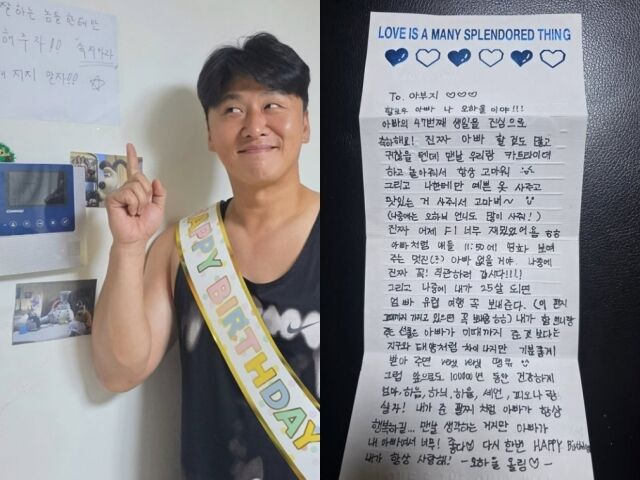 잘하는 놈들한테만
해주자!!
속지마라
지지 말자!!
HAPPY BIRTHDAY
LOVE IS A MANY SPLENDORED THING
To. 아부지 ♡♡♡
헬로우 아빠 나 오하율이야!!!
아빠의 47번째 생일을 진심으로
축하해요! 진짜 아빠 할 것도 많고
귀찮을 텐데 맨날 우리랑 카트라이더
하고 놀아줘서 항상 고마워
그리고 나한테만 예쁜 옷 사주고
맛있는 거 사줘서 고마워~
(나중에는 오하늬 언니도 많이 사줘!)
진짜 어제 F1 너무 재밌었어용 ㅎㅎ
아빠처럼 애들 11:50에! 영화 보여
주는 멋진(?) 아빠 없을 거야 나중에
진짜 꼭! 직관하러 갑시다!!!!
그리고 나중에 내가 25살 되면
엄빠 유럽 여행 꼭 보내준다. (이 편지
그때까지 가지고 있으면 꼭 보내줌 ㅎㅎ) 내가
주는 선물은 아빠가 이때까지 준 것보다는
지구와 태양처럼 차이 나지만 기분 좋게
받아 주면 very very 땡큐
그럼 앞으로도 100000년 동안 건강하게
엄마, 하음, 하늬, 하율, 세언, 피오나랑
살자! 내가 준 팔찌처럼 아빠가 항상
행복하길... 맨날 생각하는 거지만 아빠가
내 아빠여서 너무! 좋다♡ 다시 한번 HAPPY Birthday
내가 항상 사랑해! - 오하율 올림♡ -